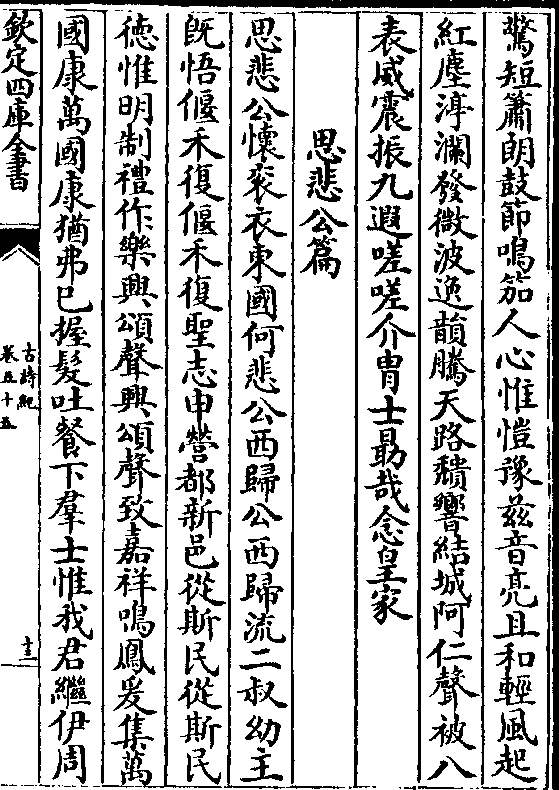 驚短簫朗鼓節鳴笳人心惟愷豫兹音亮且和輕風起
紅塵渟瀾發微波逸韻騰天路頹響結城阿仁聲被八
表威震振九遐嗟嗟介胄士勗哉念皇家
思悲公篇
思悲公懷衮衣東國何悲公西歸公西歸流二叔幼主
既悟偃禾復偃禾復聖志申營都新邑從斯民從斯民
德惟明制禮作樂興頌聲興頌聲致嘉祥鳴鳳爰集萬
國康萬國康猶弗已握髮吐餐下羣士惟我君繼伊周
欽定四庫全書
古詩紀
卷五十五
十三